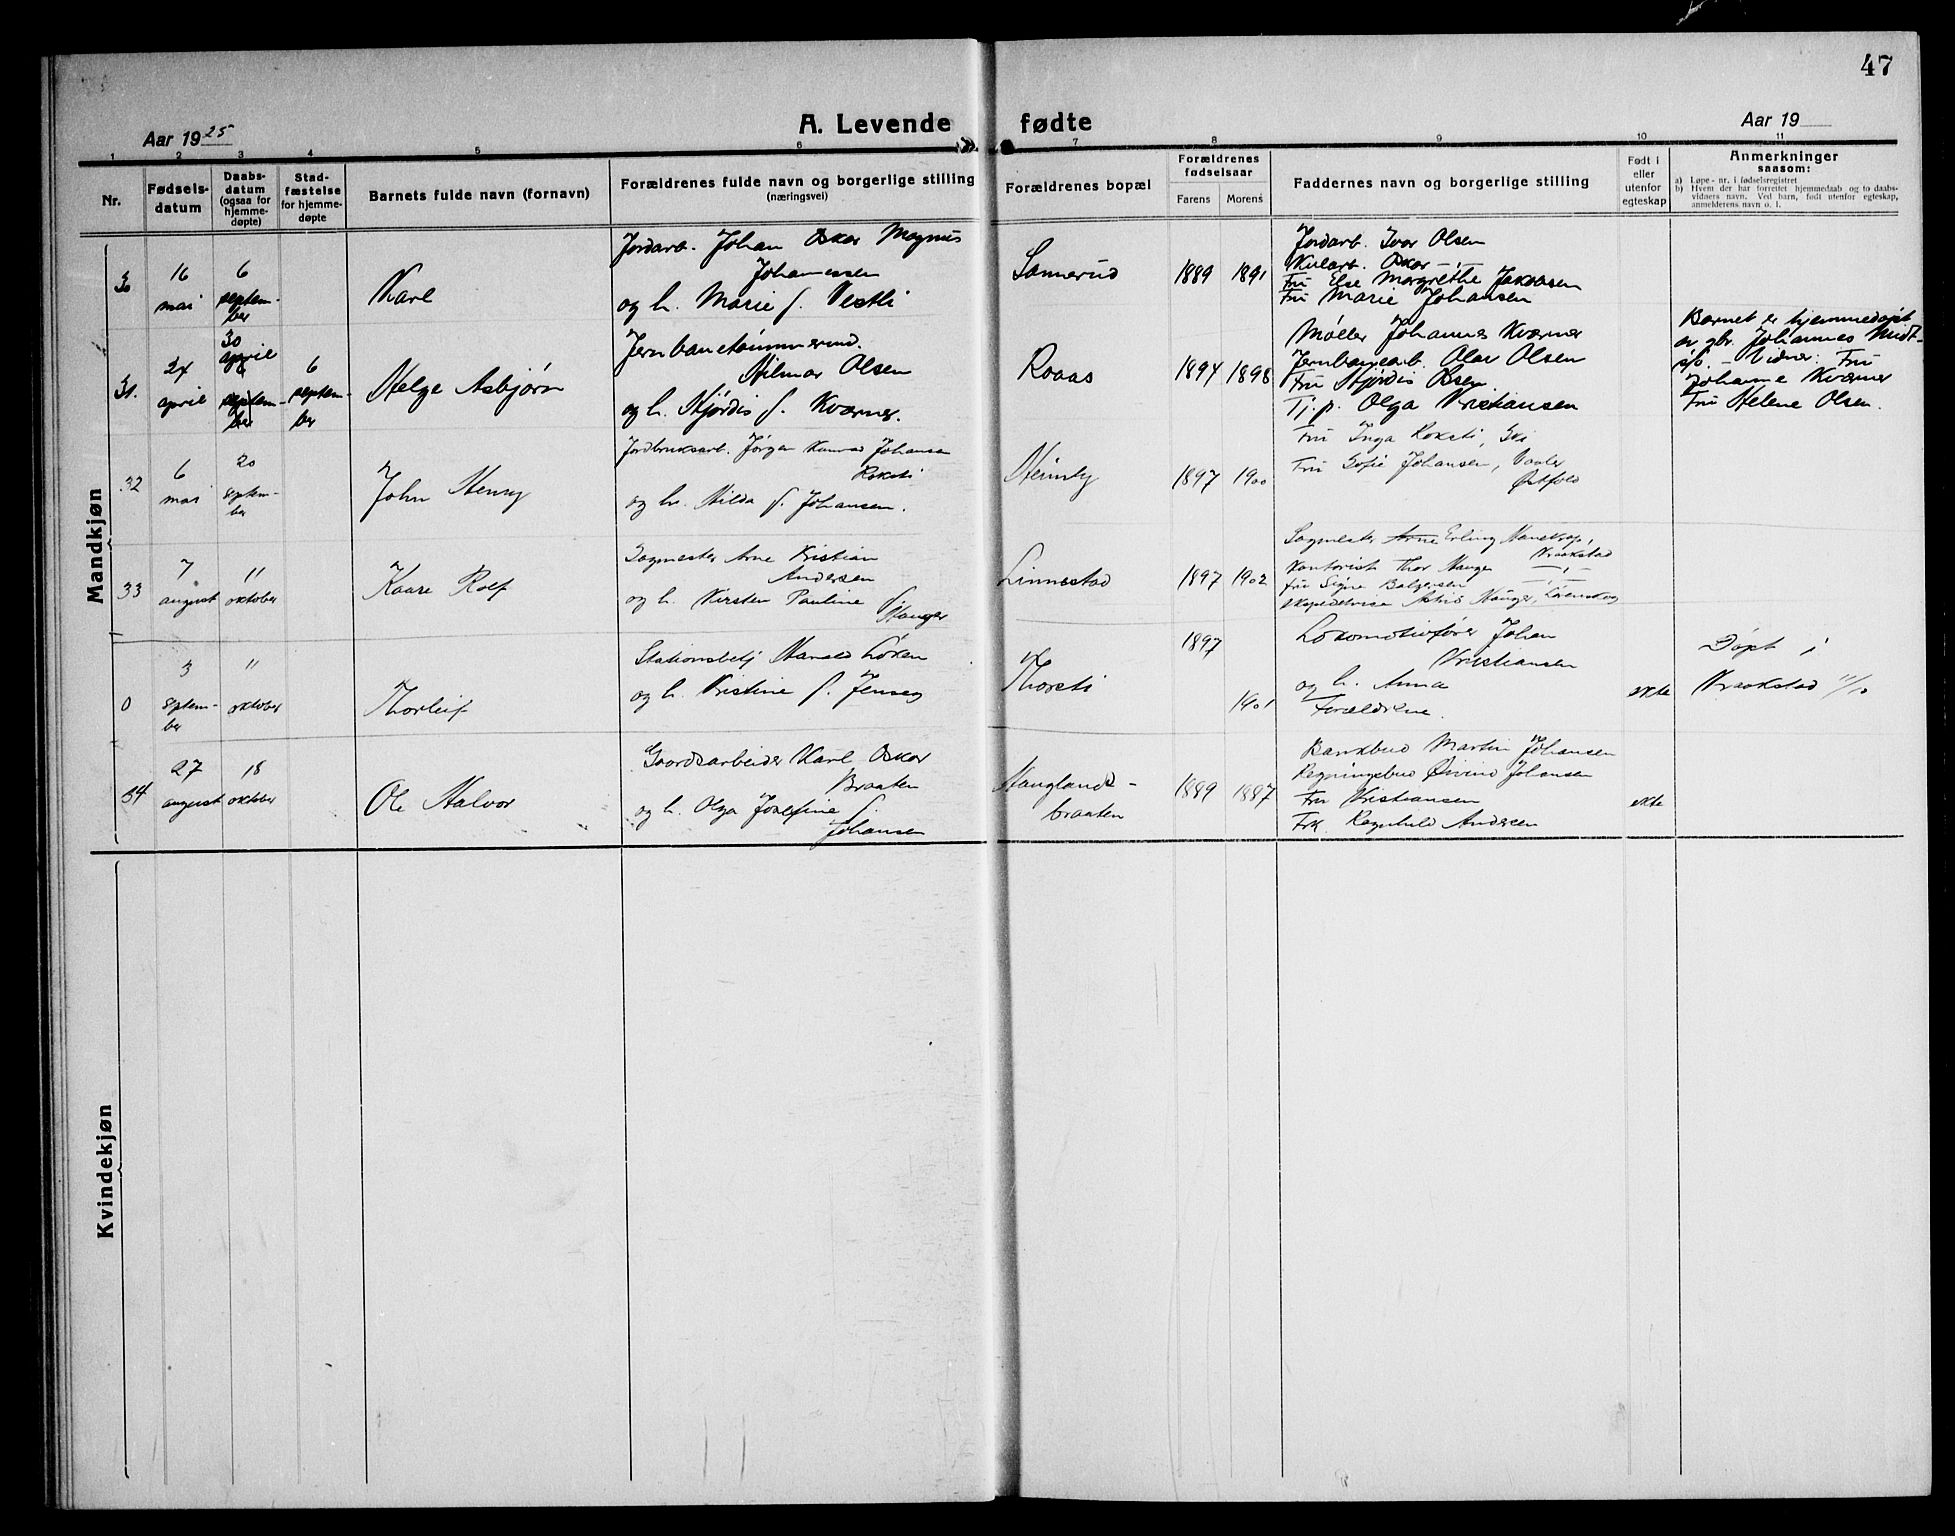 47
Aar 1925
A. Levende fødte
Aar 19
1 2 3 4 5 6 7 8 9 10 11
Nr.
Fødsels-
datum
Daabs-
datum
(ogsaa for
hjemme-
døpte)
Stad-
fæstelse
for hjemme-
døpte
Barnets fulde navn (fornavn)
Forældrenes fulde navn og borgerlige stilling
(næringsvei)
Forældrenes bopæl
Forældrenes
fødselsaar
Farens Morens
Faddernes navn og borgerlige stilling
Født i
eller
utenfor
egteskap
Anmerkninger
saasom:
a) Løpe-nr. i fødselsregistret
b) Hvem der har forrettet hjemmedaab og to daabs-
vidners navn. Ved barn, født utenfor egteskap,
anmelderens navn o. l.
Mandkjøn
30
16
mai
6
septem-
ber
Karl
Jordarb. Johan Oskar Magnus
Johannessen
og h. Marie f. Vestli
Sannerud
1889 1891
Jordarb. Ivar Olsen
Oskar —„—
Fru Else Margrethe Jakobsen
Fru Marie Johansen
31.
24
april
30
april
septem-
ber
6
septem-
ber
Helge Asbjørn
Jernbanetømmermd.
Hilmar Olsen
og h. Hjørdis f. Kværner.
Roaas
1894 1898
Møller Johannes Kværner
Jernbanearb. Olav Olsen
Fru Hjørdis Olsen.
Tj.p. Olga Kristiansen
Barnet er hjemmedøpt
av gbr. Johannes Midt-
sjø. – Vidner: Fru
Johanne Kværner
Fru Helene Olsen.
32
6
mai
20
septem-
ber
John Henry
Jordbruksarb. Jørgen Konrad Johansen
Roksti
og h. Hilda f. Johansen.
Heimly
1897 1900
Fru Inga Roksti, Ski
Fru Sofie Johansen, Vaaler
Østfold
33
7
august
11
oktober
Kaare Rolf
Sagmester Arne Kristian
Andersen
og h. Kirsten Pauline f.
Hauger
Linnestad
1897 1902
Sagmester Arne Erling
Kraakstad
Kontorist Thor Hauger —„—
fru Signe —„—
Astrid Hauger, Lørenskog
0
3
septem-
ber
11
oktober
Thorleif
Stationsbetj Harald Løken
og h. Kristine f. Jenseg
Thorsti
1897
1901
Lokomotivfører Johan
Kristiansen
og h. Anna
Forældrene.
ekte
Døpt i
Kraakstad 11/10
34
27
august
18
oktober
Ole Halvor
Gaardsarbeider Karl Oskar
Braaten
og h. Olga Josefine f.
Johansen
Hauglands-
braaten
1889 1887
Bankbud Martin Johansen
Regningsbud Øivind Johansen
Fru Kristiansen
Frk. Ragnhild Andersen
ekte
Kvindekjøn